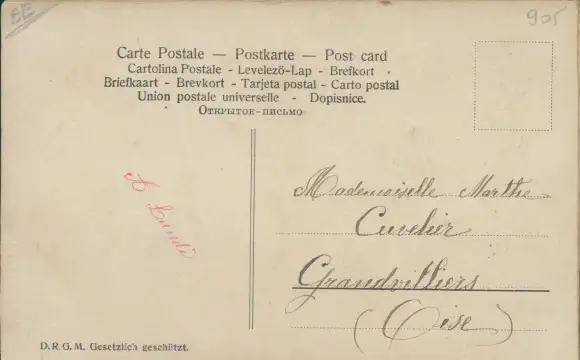 BE
905
Carte Postale — Postkarte — Post card
Cartolina Postale - Levelezö-Lap - Brefkort
Briefkaart - Brevkort - Tarjeta postal - Carto postal
Union postale universelle - Dopisnice.
Открытое-письмо
A Lundi
Mademoiselle Marthe
Cuvelier
Grandvilliers
(Oise)
D.R.G.M. Gesetzlich geschützt.